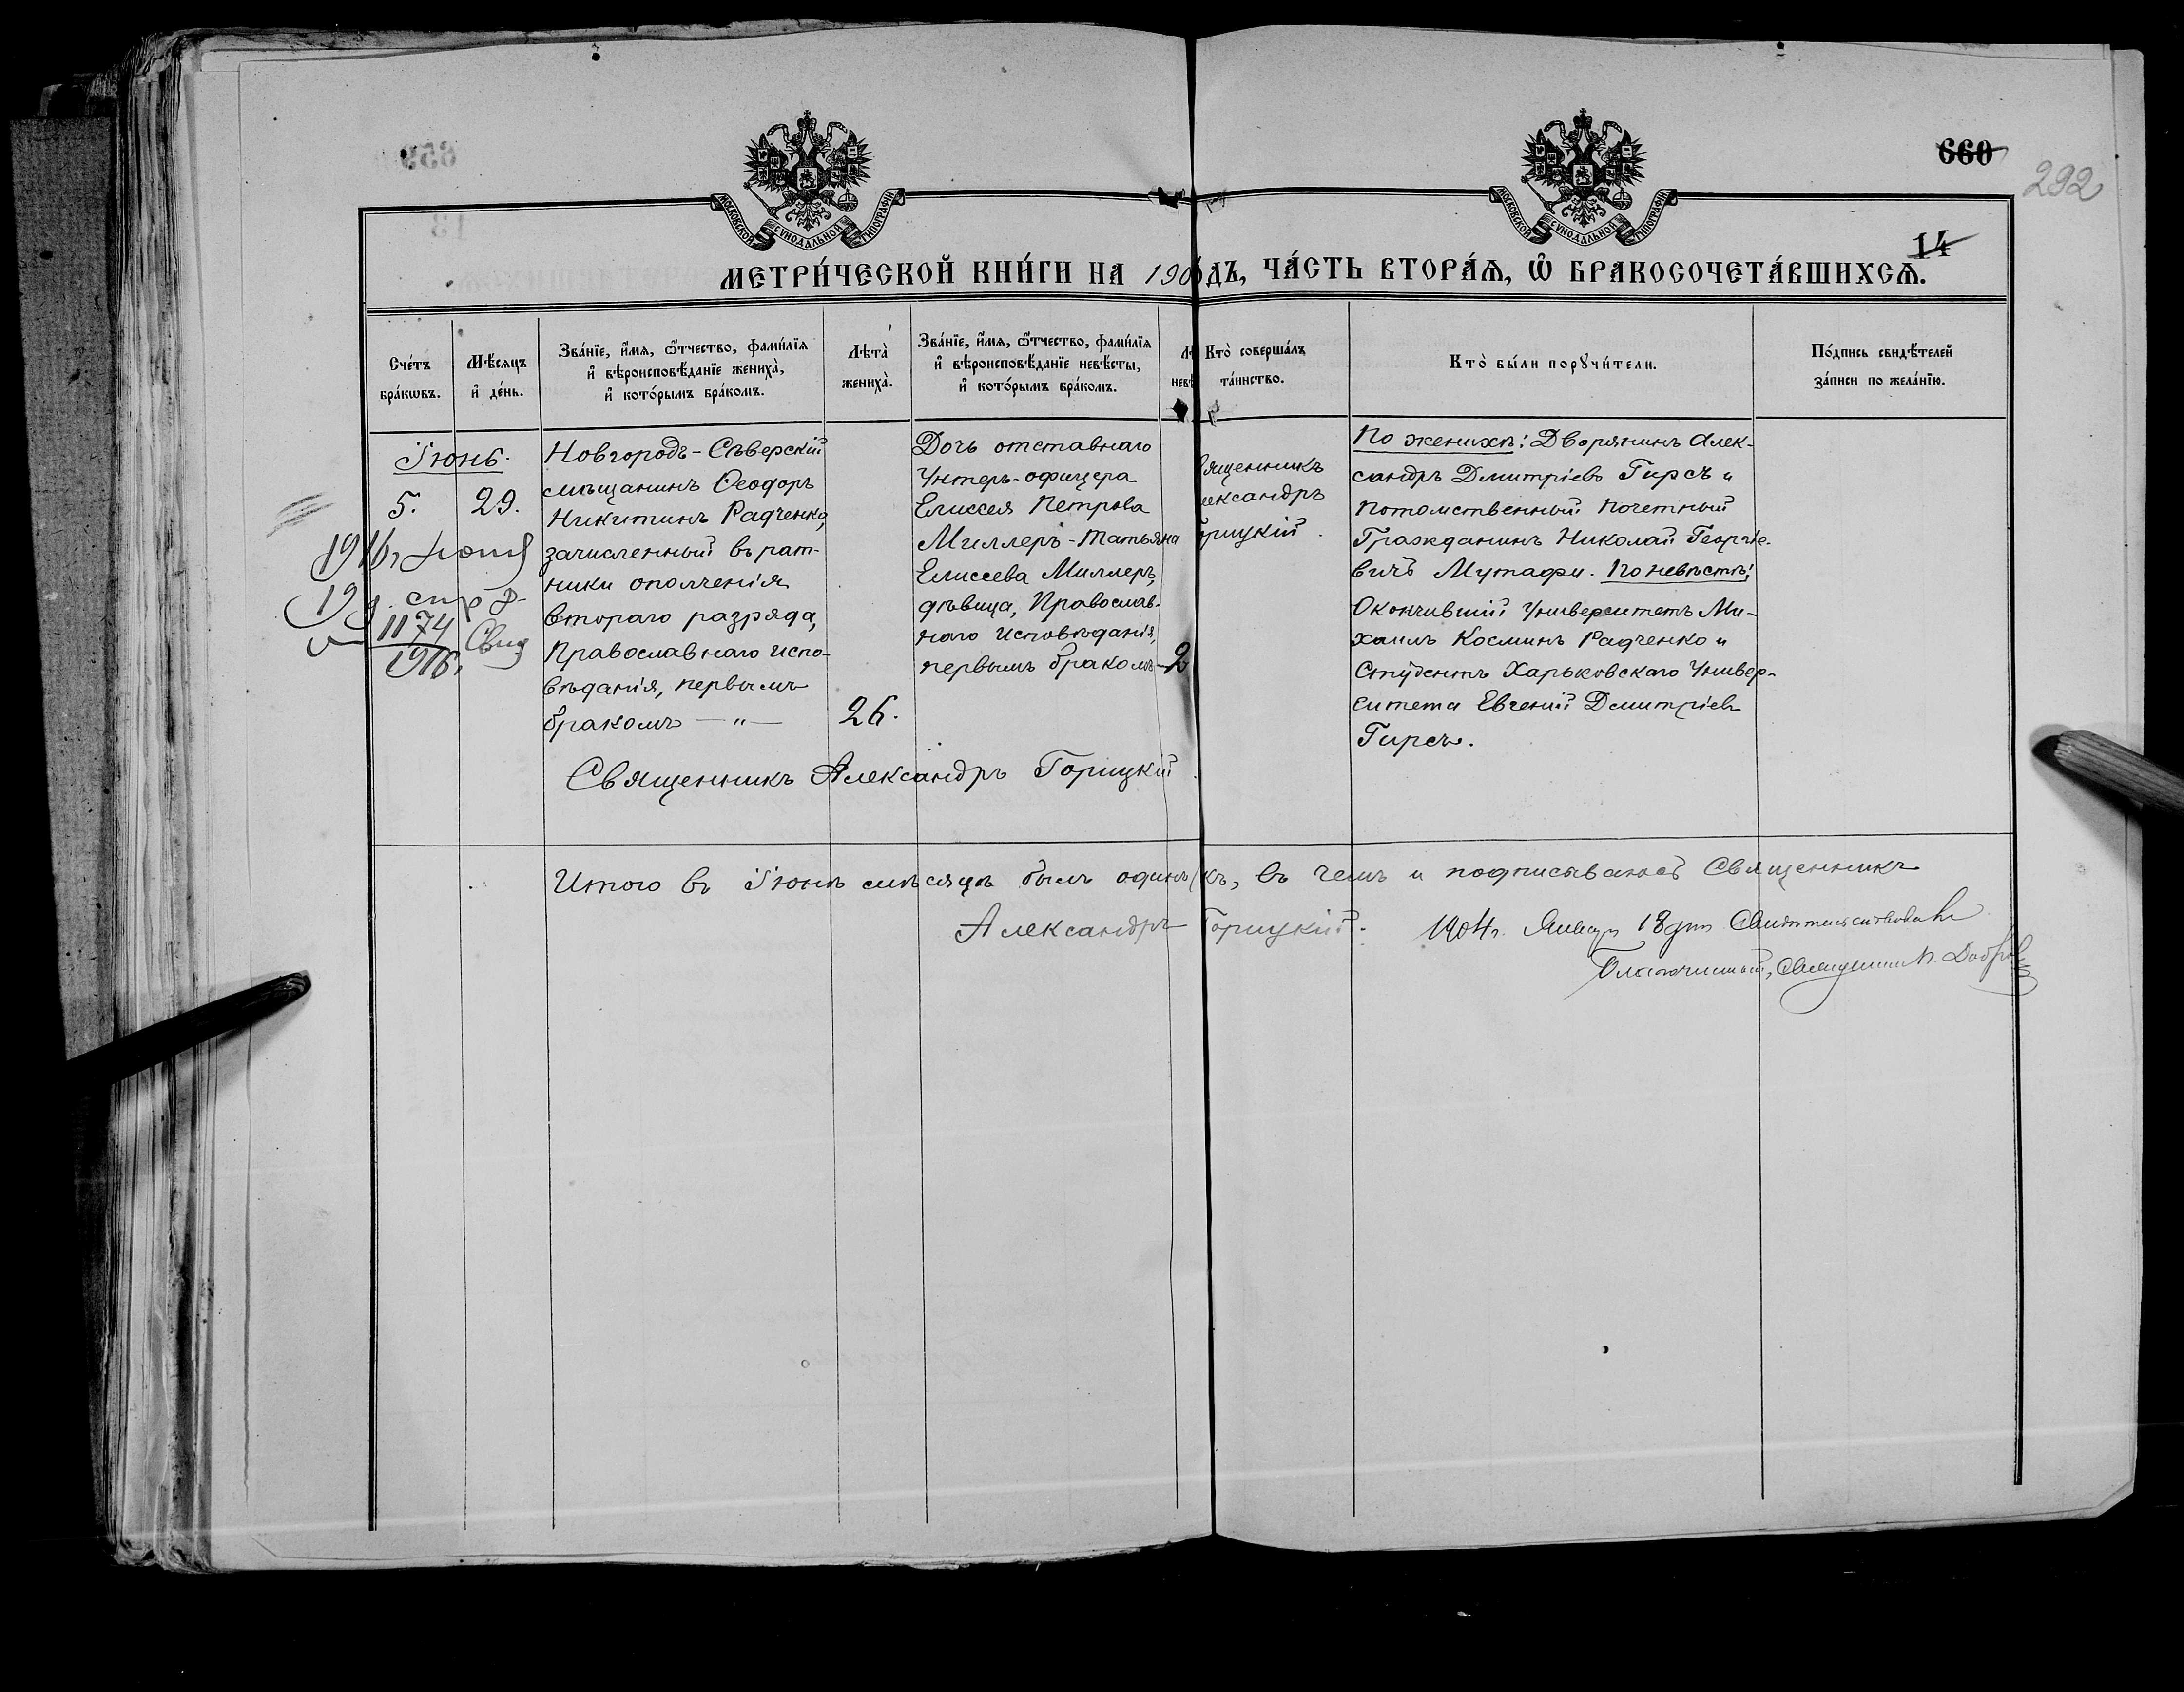 660
292
14
МОСКОВСКОЙ СѴНОДАЛЬНОЙ ТИПОГРАФІИ
МОСКОВСКОЙ СѴНОДАЛЬНОЙ ТИПОГРАФІИ
МЕТРИ́ЧЕСКОЙ КНИ́ГИ НА 190 ДЪ, ЧА́СТЬ ВТОРА́Ѧ, Ѡ҆ БРАКОСОЧЕТА́ВШИХСѦ.
Сче́тъ
бра́кѡвъ.
Мѣ́сяцъ
и҆ де́нь.
Зва́нїе, и҆́мѧ, ѻ҆́тчество, фами́лїѧ
и҆ вѣроисповѣ́данїе жениха̀,
и҆ кото́рымъ бра́комъ.
Лѣта̀
жениха̀.
Зва́нїе, и҆́мѧ, ѻ҆́тчество, фами́лїѧ
и҆ вѣроисповѣ́данїе невѣ́сты,
и҆ кото́рымъ бра́комъ.
Кто̀ соверша́лъ
та́инство.
Кто̀ бы́ли порꙋчи́тели.
По́дпись свидѣ́телей
за́писи по жела́нїю.
Іюнь.
5.
29.
1174
1916
Новгородъ-Сѣверскій
мѣщанинъ Ѳеодоръ
Никитинъ Радченко,
зачисленный въ рат-
ники ополченія
втораго разряда,
Православнаго испо-
вѣданія, первымъ
бракомъ — „ —
26.
Дочь отставнаго
Унтеръ-офицера
Елисея Петрова
Миллеръ-Татьяна
Елисеева Миллеръ,
дѣвица, Православ-
наго исповѣданія,
первымъ бракомъ— 2
ященникъ
лександръ
орицкій.
По женихѣ: Дворянинъ Алек-
сандръ Дмитріевъ Гирсъ и
потомственный почетный
Гражданинъ Николай Георгіе-
вичъ Мутафи. По невѣстѣ:
Окончившій Университетъ Ми-
хаилъ Косминъ Радченко и
Студентъ Харьковскаго Универ-
ситета Евгеній Дмитріевъ
Гирсъ.
Священникъ Александръ Горицкій
Итого въ Іюнѣ мѣсяцѣ былъ одинъ къ, въ чемъ и подписываюсь Священникъ
Александръ Горицкій.
1904 г. Января 18 дня Свидѣтельствовалъ
Благочинный, Священникъ